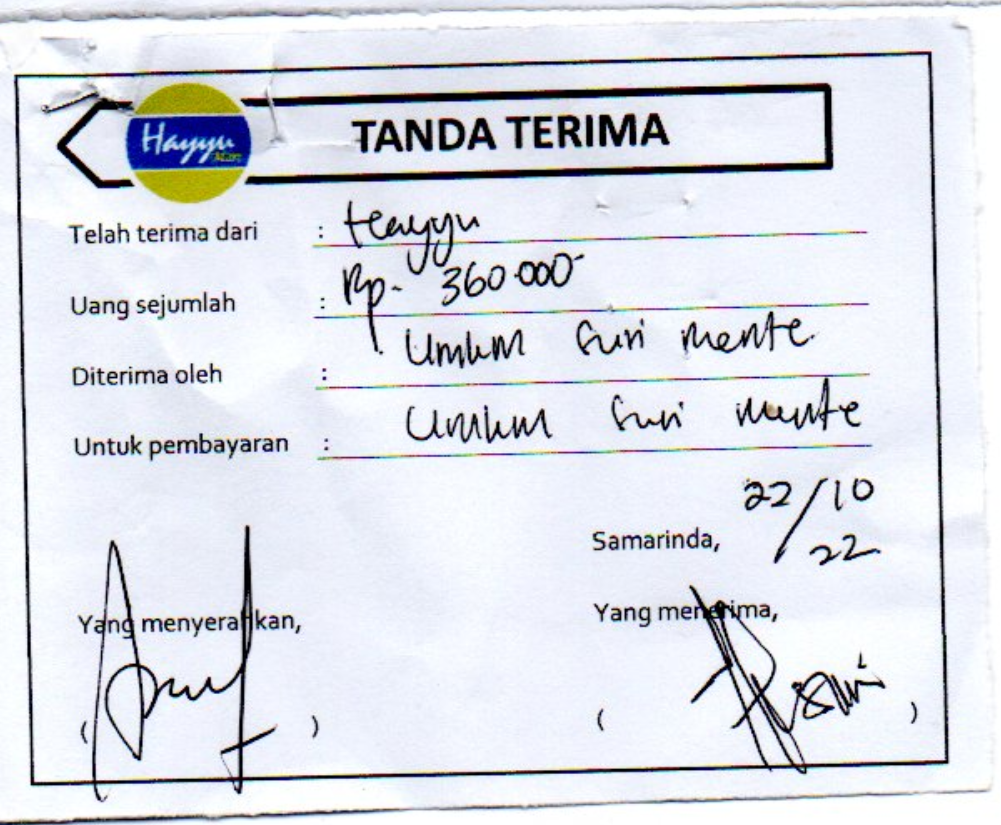 Hayyu
TANDA TERIMA
Telah terima dari : Hayyu
Uang sejumlah : Rp. 360.000
Diterima oleh : Umkm Suri mente
Untuk pembayaran : Umkm Suri mente
Samarinda, 22/10
22
Yang menyerahkan,
Yang menerima,
( )
( )